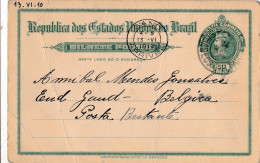 13.VI.10
Republica dos Estados Unidos do Brazil
BILHETE POSTAL
NESTE LADO SÓ O ENDEREÇO
Annibal Mendes Gonsalves
Gand — Belgica
Posta Restante